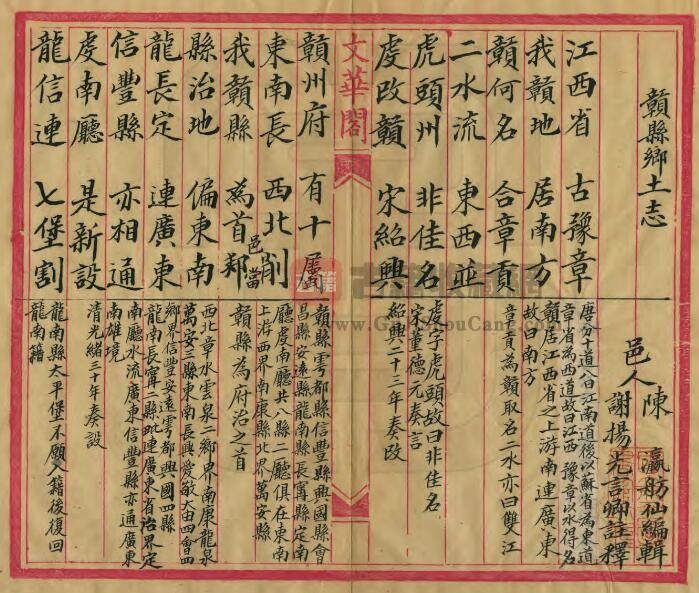 贛縣鄉土志
邑人
陳瀛舫仙編輯
謝揚光言卿註釋
江西省 古豫章
唐分十道八曰江南道後以蘇省為東道
章省為西道故曰江西 豫章以水得名
我贛地 居南方
贛居江西省之上游南連廣東
故曰南方
贛何名 合章貢
章貢為贛取名二水亦曰雙江
二水流 東西並
虎頭州 非佳名
虔字虎頭故曰非佳名
宋董德元奏言
虔改贛 宋紹興
紹興二十三年奏改
文華閣
贛州府 有十屬
贛縣雩都縣信豐縣興國縣會
昌縣安遠縣龍南縣長寗縣定南
廳虔南廳共八縣二廳俱在東南
東南長 西北削
上游西界南康縣北界萬安縣
我贛縣 為首邑當
贛縣為府治之首
縣治地 偏東南
西北章水雲泉二鄉界南康龍泉
萬安三縣東南長興愛敬大由四會四
鄉界信豐安遠雩都興國四縣
龍長定 連廣東
龍南長寗二縣毗連廣東省治界定
南廳水流廣東信豐縣亦通廣東
南雄境
信豐縣 亦相通
虔南廳 是新設
清光緒三十年奏設
龍信連 七堡割
龍南縣太平堡不願入籍後復回
龍南籍